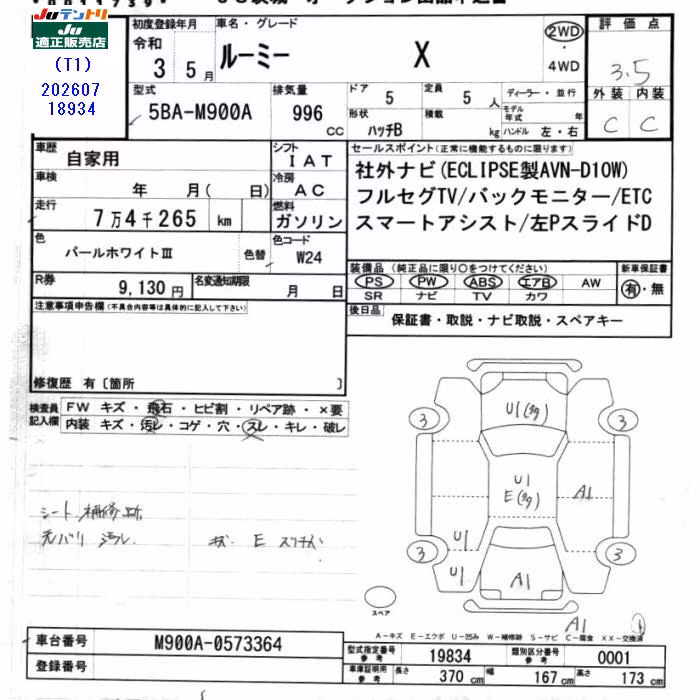 Juテントリ
Ju適正販売店
(T1)
202607
18934
初度登録年月
令和
3 5月
車名・グレード
ルーミー X
2WD
・
4WD
評価点
3.5
外装 内装
C C
型式
5BA-M900A
排気量
996
CC
ドア
5
定員
5 人
形状
ハッチB
積載
kg
ディーラー・並行
モデル年式 年
ハンドル 左・右
車歴
自家用
シフト
IAT
車検
年 月( 日)
冷房
AC
走行
7万4千265 km
燃料
ガソリン
色
パールホワイトⅢ
色替
色コード
W24
R券
9,130円
名変通知期限
月 日
セールスポイント(正常に機能するものに限ります)
社外ナビ(ECLIPSE製AVN-D10W)
フルセグTV/バックモニター/ETC
スマートアシスト/左PスライドD
装備品(純正品に限り○をつけてください)
PS PW ABS エアB AW
SR ナビ TV カワ
新車保証書
有・無
後日品
保証書・取説・ナビ取説・スペアキー
注意事項申告欄(不具合内容等は具体的に記入して下さい)
修復歴 有〔箇所 〕
検査員記入欄
FW キズ・飛石・ヒビ割・リペア跡・×要
内装 キズ・汚レ・コゲ・穴・スレ・キレ・破レ
シート補修跡
汚レ
キズ E
3
3
3
3
U1
U1
E
U1
U1
A1
A1
A1
スペア
A-キズ E-エクボ U-凹み W-補修跡 S-サビ C-腐食 XX-交換済
車台番号
M900A-0573364
登録番号
型式指定番号
参考
19834
類別区分番号
参考
0001
車庫証明用
参考
長さ 370 cm
幅 167 cm
高さ 173 cm